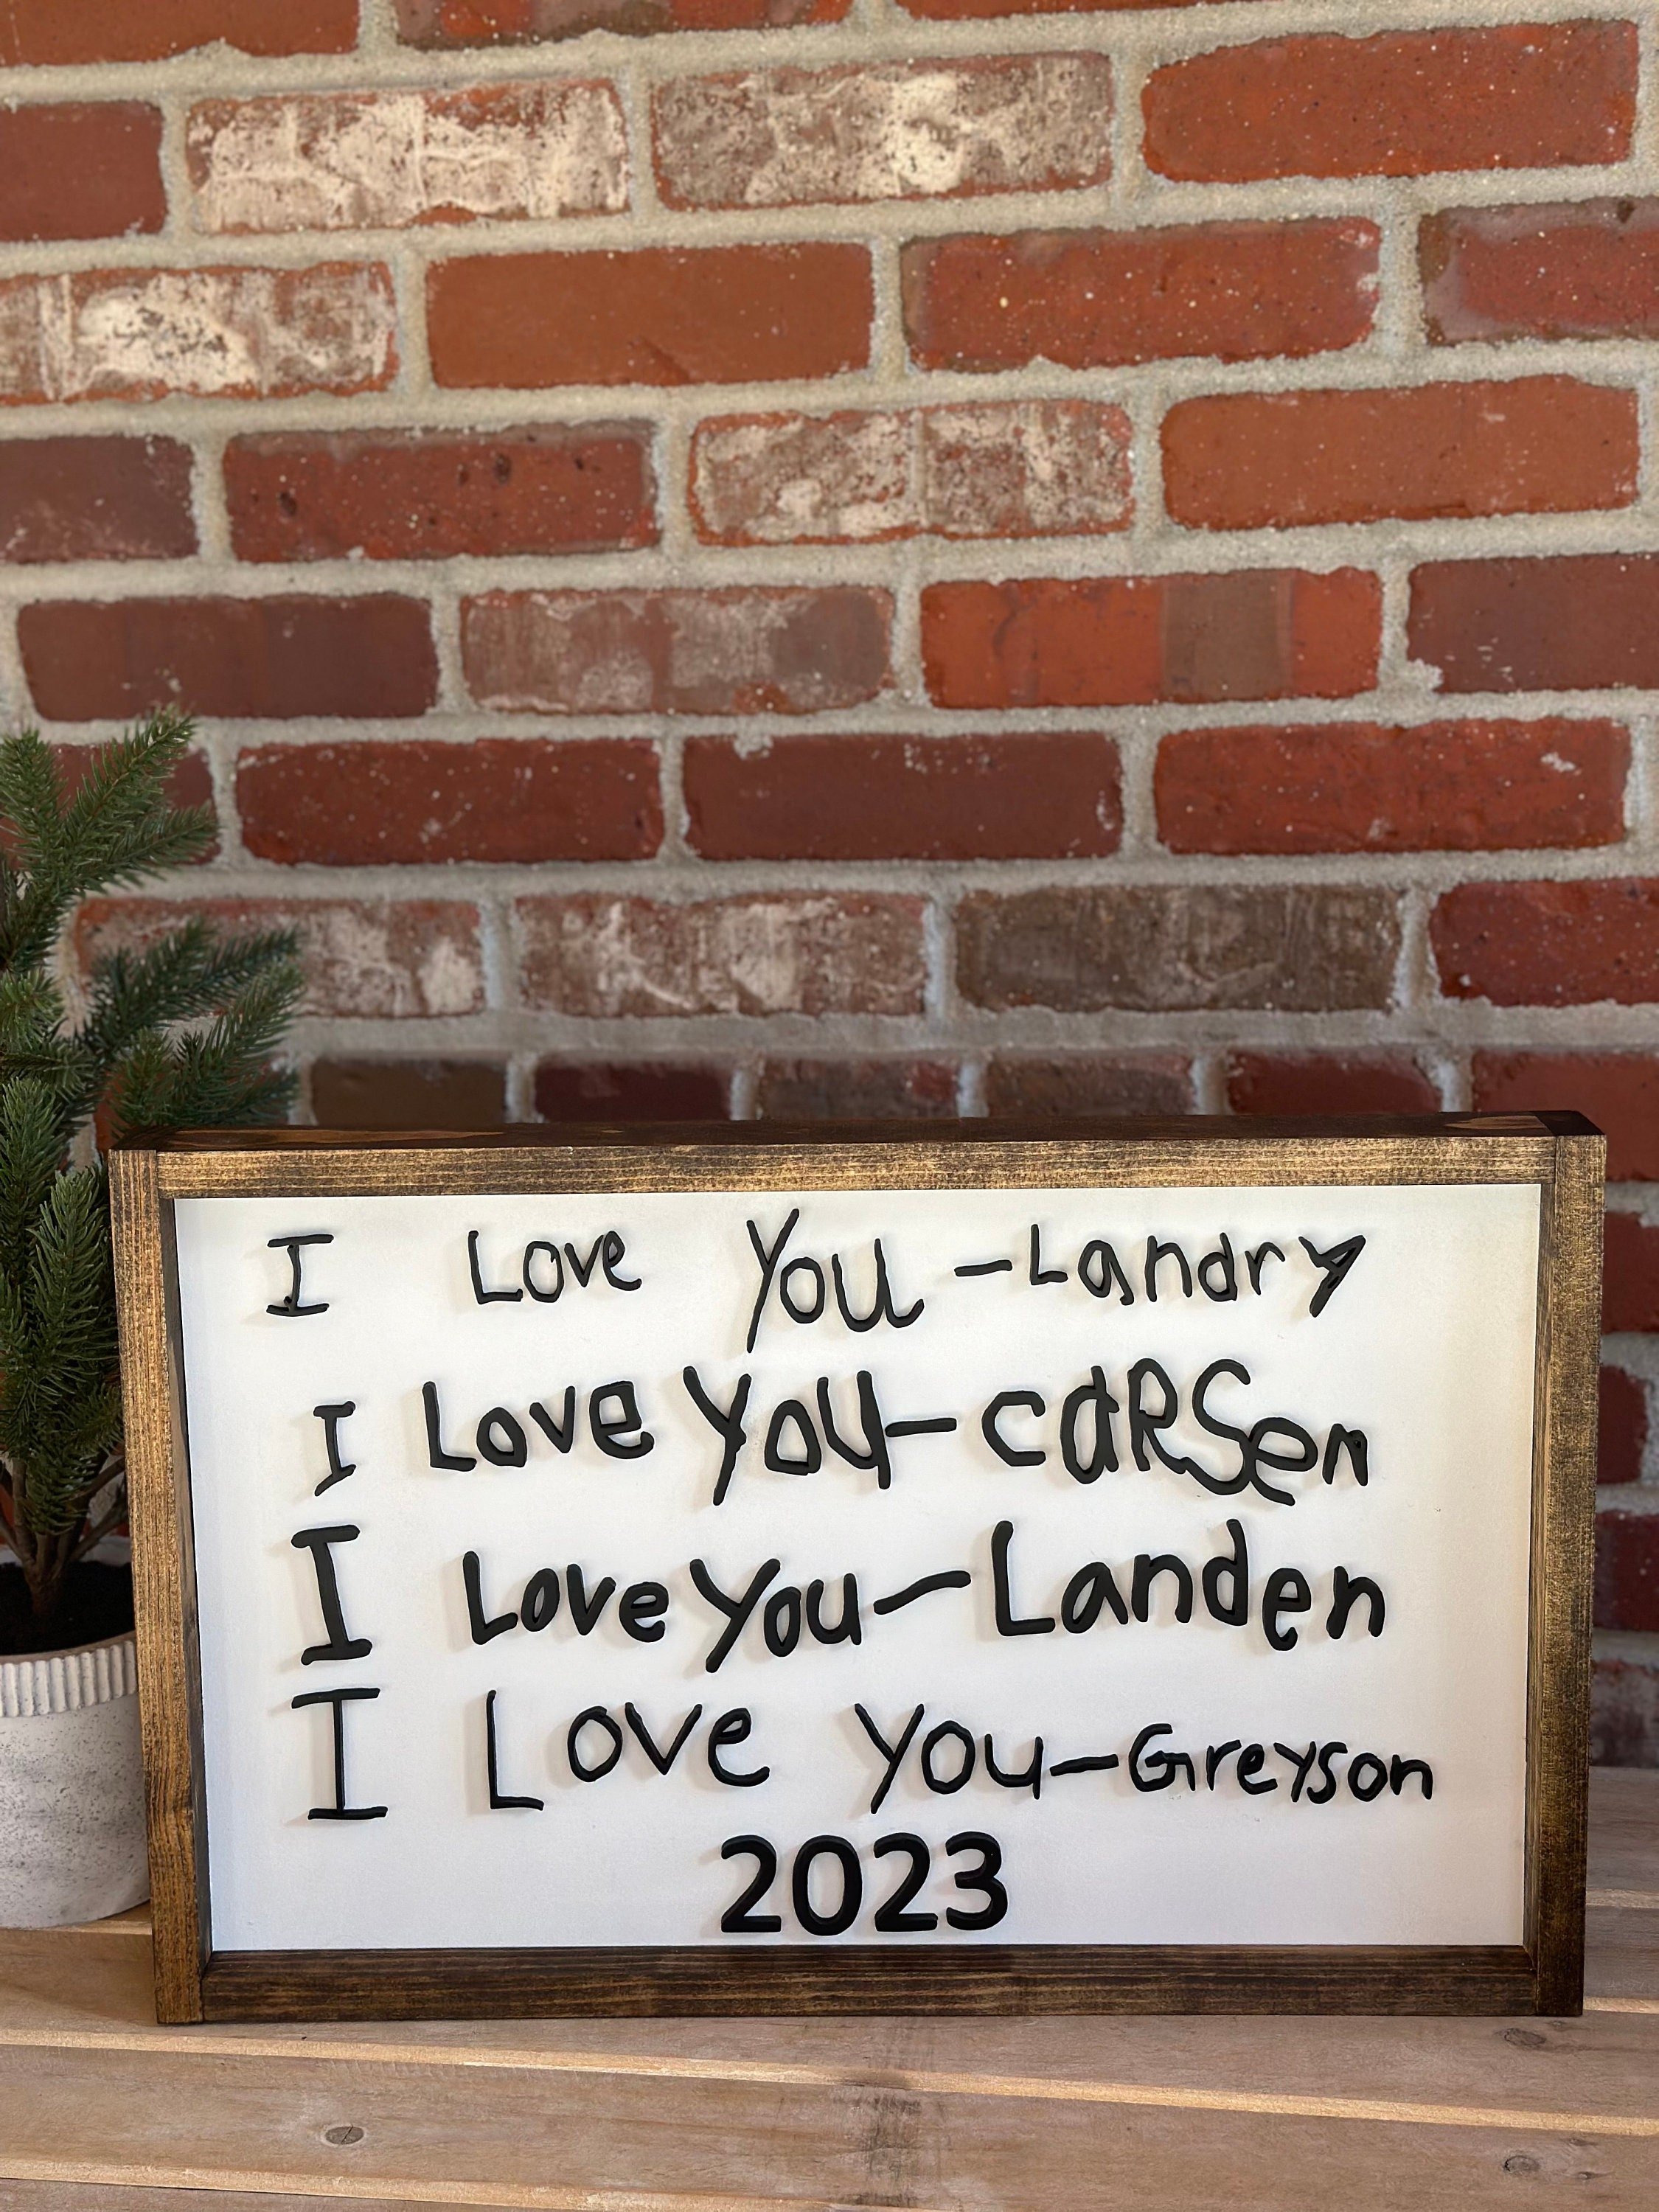 I Love You -Landry
I Love You-caRSen
I Love You-Landen
I Love you-Greyson
2023